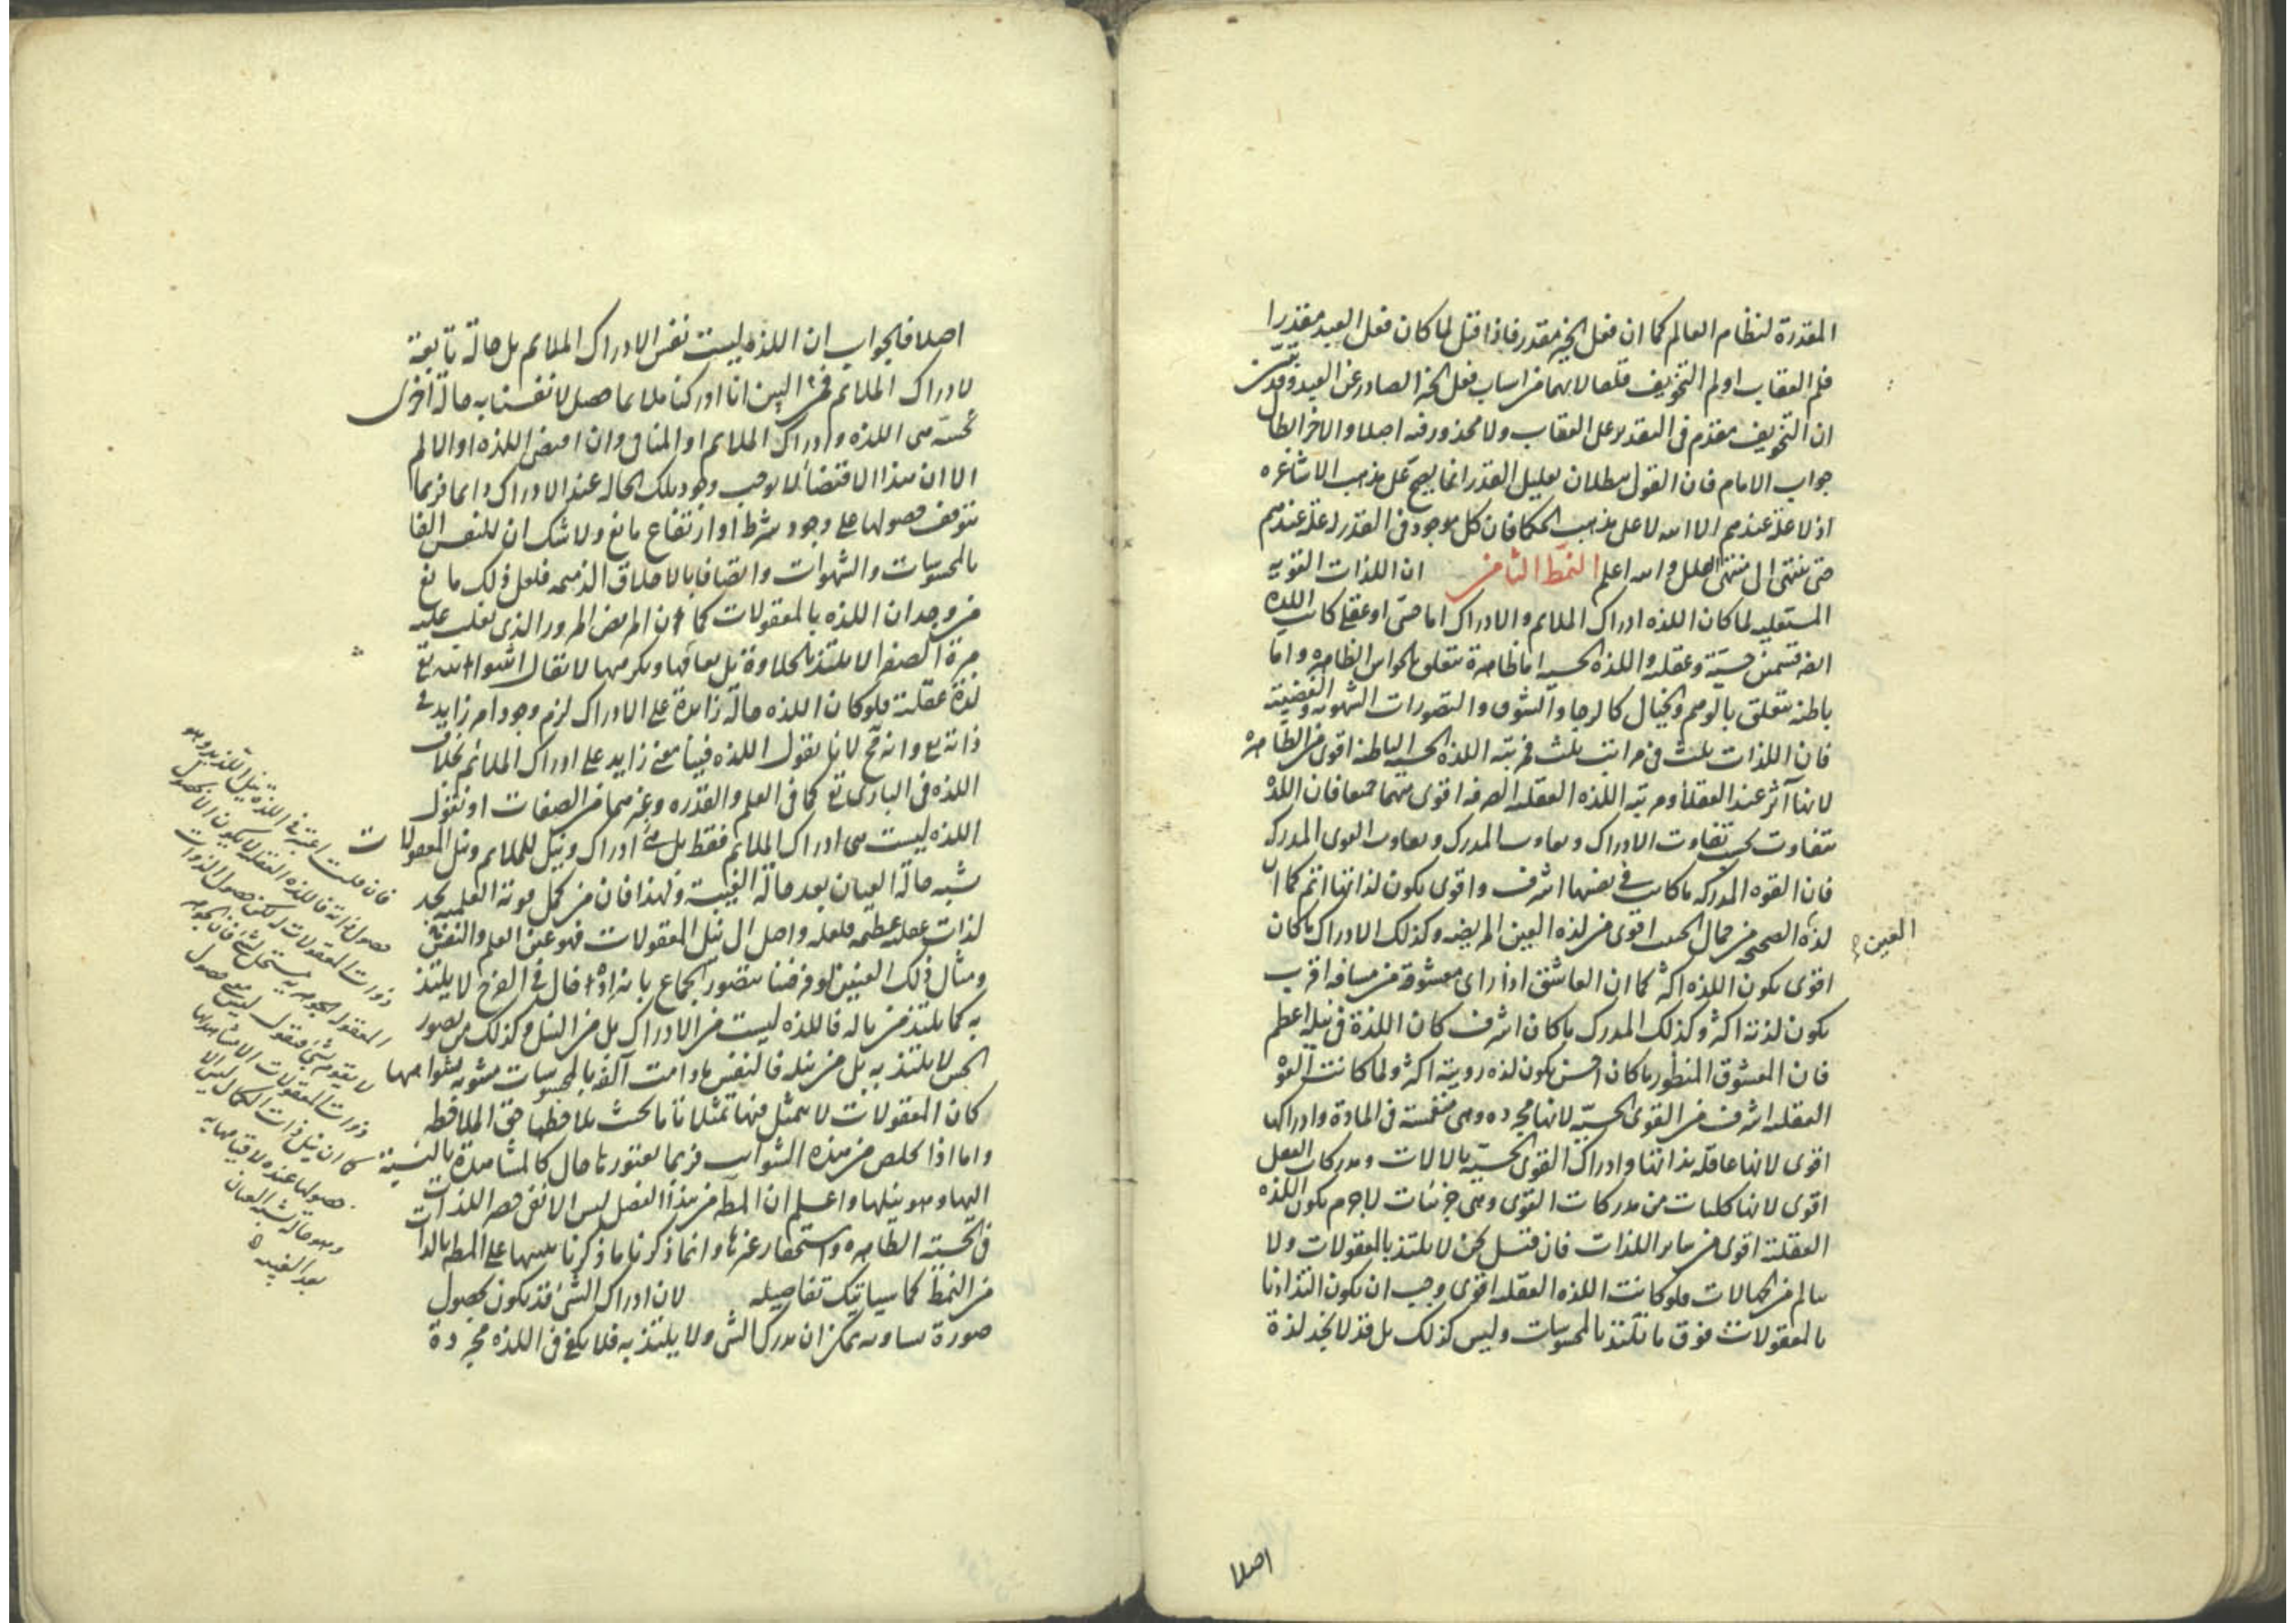 المقدرة لنظام العالم كما ان فعل الخير مقدر فاذا قيل لما كان فعل العبد مقدرا
فلم العقاب او لم التخويف قلنا لانهما من اسباب فعل الخير الصادر عن العبد وقد تبين
ان التخويف مقدم فى التقدير على العقاب ولا محذور فيه اصلا والاخر ابطال
جواب الامام فان القول ببطلان تعليل القدر انما يصح على مذهب الاشاعره
اذ لا علة عندهم الا الله لا على مذهب الحكما فان كل موجود فى القدر له علة عندهم
حتى ينتهى الى منتهى العلل والله اعلم النمط الثامن ان اللذات القويه
المستعليه لما كان اللذه ادراك الملائم والادراك اما حسى او عقلى كانت اللذه
ايضا قسمين حسيّة وعقليه واللذه الحسيه اما ظاهرة تتعلق بالحواس الظاهره واما
باطنه تتعلق بالوهم والخيال كالرجاء والشوق والتصورات الشهويه والغضبيّة
فان اللذات ثلث فى مراتب ثلث مرتبه اللذه الحسيه الباطنه اقوى من الظاهره
لانها آثر عند العقلاء ومرتبه اللذه العقليه الصرفه اقوى منهما جميعا فان اللذه
تتفاوت بحسب تفاوت الادراك وتفاوت المدرك وتفاوت القوى المدركه
فان القوه المدركه ما كانت فى نفسها اشرف واقوى يكون لذاتها اتم كما ان
لذة الصحيحه من جمال الحسن اقوى من لذه العين المريضه وكذلك الادراك ما كان
العين
اقوى يكون اللذه اكثر كما ان العاشق اذا راى معشوقة من مسافه اقرب
يكون لذته اكثر وكذلك المدرك ما كان اشرف كان اللذة فى نيله اعظم
فان المعشوق المنظور ما كان احسن يكون لذه رويته اكثر ولما كانت القوه
العقليه اشرف من القوى الحسيّه لانها مجرده وهى منغمسة فى المادة وادراكها
اقوى لانها عاقله بذاتها وادراك القوى الحسيّه بالالات ومدركات العقل
اقوى لانها كليات من مدركات القوى وهى جزئيات لاجرم يكون اللذه
العقلية اقوى من ساير اللذات فان قيل نحن لا نلتذ بالمعقولات ولا
نتالم من الجهالات فلو كانت اللذه العقليه اقوى وجب ان يكون التذاذنا
بالمعقولات فوق ما نلتذ بالمحسوسات وليس كذلك بل قد لا نجد لذة
اصلا
اصلا فالجواب ان اللذه ليست نفس الادراك الملائم بل حالة تابعة
لادراك الملائم فمن البين انا اذا ادركنا ملايما حصل لانفسنا به حالة اخرى
حسّية هى اللذه وادراك الملايم او المنافى وان اقتضى اللذه او الالم
الا ان هذا الاقتضاء لا يوجب وجود تلك الحاله عند الادراك دائما فربما
يتوقف حصولها على وجود شرط او ارتفاع مانع ولا شك ان للنفس الفا
بالمحسوسات والشهوات واتصافا بالاخلاق الذميمه فلعل ذلك مانع
من وجدان اللذه بالمعقولات كما ان المريض الممرور الذى تغلب عليه
مرة الصفراء لا يلتذ بالحلاوة بل يعافها ويكرهها لا يقال اثبتوا لله تع
لذة عقليّة فلو كان اللذه حالة زايدة على الادراك لزم وجود امر زايد فى
ذاته تع وانه مح لانا نقول اللذه فينا معنى زايد على ادراك الملائم بخلاف
اللذه فى البارى تع كما فى العلم والقدره وغيرهما من الصفات او نقول
اللذه ليست هى ادراك الملايم فقط بل هى ادراك ونيل للملايم ونيل المعقولات
شبه حالة العيان بعد حالة الغيبة ولهذا فان من كمل قوته العلمية يجد
لذات عقليه عظيمه فلعله واصل الى نيل المعقولات فهو عين العلم والنفس
ومثال ذلك العنين لو فرضنا يتصور الجماع لا يلتذ
به كما يلتذ من ناله فاللذه ليست من الادراك بل من النيل وكذلك من تصور
الحسن لا يلتذ به بل من نيله فالنفس ما دامت آلفه بالمحسوسات مشوبه بشوائبها
كان المعقولات لا يتمثل فيها تمثلا تاما بحيث يلاحظها حق الملاحظه
واما اذا تخلص من هذه الشوائب فربما يعتور لها حال كالمشاهدة بالنسبة
اليها وهو نيلها واعلم ان المط من هذا الفصل ليس الا نفى حصر اللذات
فى الحسيّه الظاهره واستحقار غيرها وانما ذكرنا ما ذكرنا تنبيها على المط بالذات
من النمط كما سياتيك تفاصيله لان ادراك الشئ قد يكون بحصول
صورة تساويه يمكن ان يدرك الشى ولا يلتذ به فلا يكفى فى اللذه مجردة
فان قلت اعتبر فى اللذة نيل اللذيذ وهو
حصول ذاته فاللذه العقليه لا يكون الا بحصول
ذوات المعقولات لكن حصول الذوات
المعقوله الجوهريه يستحيل لشئ فان الجوهر
لا يقوم بشئ فنقول ليس معنى حصول
ذوات المعقولات الا مشاهدتها
كما ان نيل ذات الكمال ليس الا
حصولها عنده لا قيامها به
وهو حالة شبه العيان
بعد الغيبه